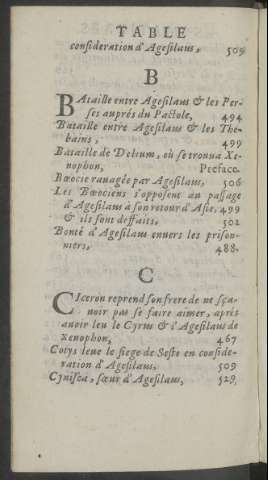 TABLE
consideration d'Agesilaus, 509
B
BAtaille entre Agesilaus & les Per-
ses auprés du Pactole, 494
Bataille entre Agesilaus & les The-
bains, 499
Bataille de Delium, où se trouua Xe-
nophon, Preface.
Bœocie rauagée par Agesilaus, 506
Les Bœociens s'opposent au passage
d'Agesilaus à son retour d'Asie, 499
& ils sont deffaits, 502
Bonté d'Agesilaus enuers les prison-
niers, 488.
C
CIceron reprend son frere de ne sça-
uoir pas se faire aimer, aprés
auoir leu le Cyrus & l'Agesilaus de
Xenophon, 467
Cotys leue le siege de Seste en conside-
ration d'Agesilaus, 509
Cynisca, sœur d'Agesilaus, 529